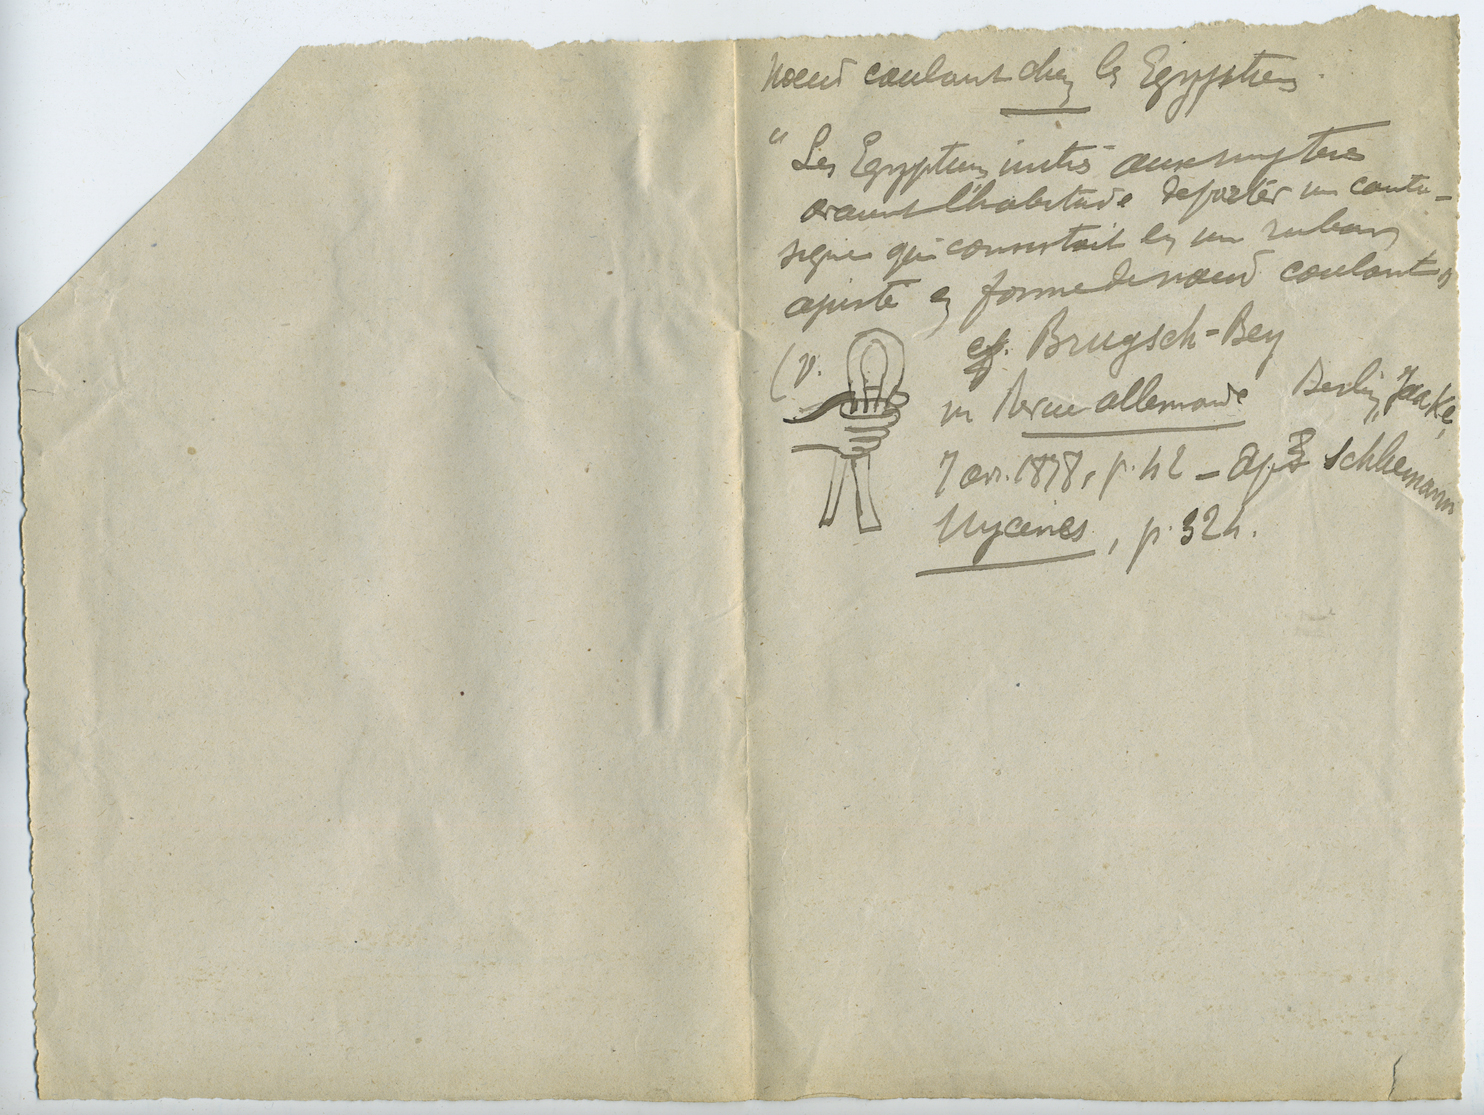 Nœud coulant chez les Egyptiens.
" Les Egyptiens initiés aux mystères
avaient l'habitude de porter un contre-
signe qui consistait en un ruban
ajusté en forme de nœud coulant "
(v.
cf. Brugsch-Bey
in Revue allemande Berlin,
7 avr. 1878, p. 42 – aps Schliemann
Mycènes, p. 324.